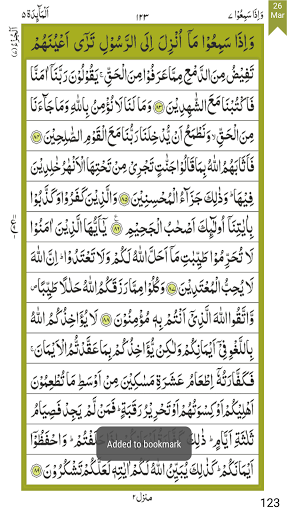 وَاِذَا سَمِعُوْا ۷ ۱۲۳ اَلْمَآىِٕدَة ۵
26
Mar
وَاِذَا سَمِعُوْا مَاۤ اُنْزِلَ اِلَى الرَّسُوْلِ تَرٰۤى اَعْيُنَهُمْ
تَفِيْضُ مِنَ الدَّمْعِ مِمَّا عَرَفُوْا مِنَ الْحَقِّ ۚ يَقُوْلُوْنَ رَبَّنَاۤ اٰمَنَّا
فَاكْتُبْنَا مَعَ الشّٰهِدِيْنَ ﴿۸۳﴾ وَمَا لَنَا لَا نُؤْمِنُ بِاللّٰهِ وَمَا جَآءَنَا
مِنَ الْحَقِّ ۙ وَنَطْمَعُ اَنْ يُّدْخِلَنَا رَبُّنَا مَعَ الْقَوْمِ الصّٰلِحِيْنَ ﴿۸۴﴾
فَاَثَابَهُمُ اللّٰهُ بِمَا قَالُوْا جَنّٰتٍ تَجْرِيْ مِنْ تَحْتِهَا الْاَنْهٰرُ خٰلِدِيْنَ
فِيْهَا ؕ وَذٰلِكَ جَزَآءُ الْمُحْسِنِيْنَ ﴿۸۵﴾ وَالَّذِيْنَ كَفَرُوْا وَكَذَّبُوْا
بِاٰيٰتِنَاۤ اُولٰٓىِٕكَ اَصْحٰبُ الْجَحِيْمِ ﴿۸۶﴾ يٰۤاَيُّهَا الَّذِيْنَ اٰمَنُوْا
لَا تُحَرِّمُوْا طَيِّبٰتِ مَاۤ اَحَلَّ اللّٰهُ لَكُمْ وَلَا تَعْتَدُوْا ؕ اِنَّ اللّٰهَ
لَا يُحِبُّ الْمُعْتَدِيْنَ ﴿۸۷﴾ وَكُلُوْا مِمَّا رَزَقَكُمُ اللّٰهُ حَلٰلًا طَيِّبًا ۪
وَّاتَّقُوا اللّٰهَ الَّذِيْۤ اَنْتُمْ بِهٖ مُؤْمِنُوْنَ ﴿۸۸﴾ لَا يُؤَاخِذُكُمُ اللّٰهُ
بِاللَّغْوِ فِيْۤ اَيْمَانِكُمْ وَلٰكِنْ يُّؤَاخِذُكُمْ بِمَا عَقَّدْتُّمُ الْاَيْمَانَ ۚ
فَكَفَّارَتُهٗۤ اِطْعَامُ عَشَرَةِ مَسٰكِيْنَ مِنْ اَوْسَطِ مَا تُطْعِمُوْنَ
اَهْلِيْكُمْ اَوْ كِسْوَتُهُمْ اَوْ تَحْرِيْرُ رَقَبَةٍ ؕ فَمَنْ لَّمْ يَجِدْ فَصِيَامُ
ثَلٰثَةِ اَيَّامٍ ؕ ذٰلِكَ حَلَفْتُمْ ؕ وَاحْفَظُوْۤا
Added to bookmark
اَيْمَانَكُمْ ؕ كَذٰلِكَ يُبَيِّنُ اللّٰهُ لَكُمْ اٰيٰتِهٖ لَعَلَّكُمْ تَشْكُرُوْنَ ﴿۸۹﴾
منزل ۲
123